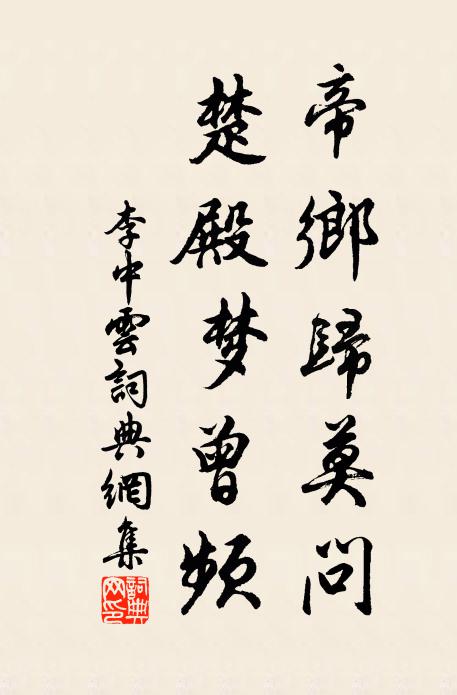 帝鄉歸莫問
楚殿梦曾頻
李中雲詞典網集
詞典
网印